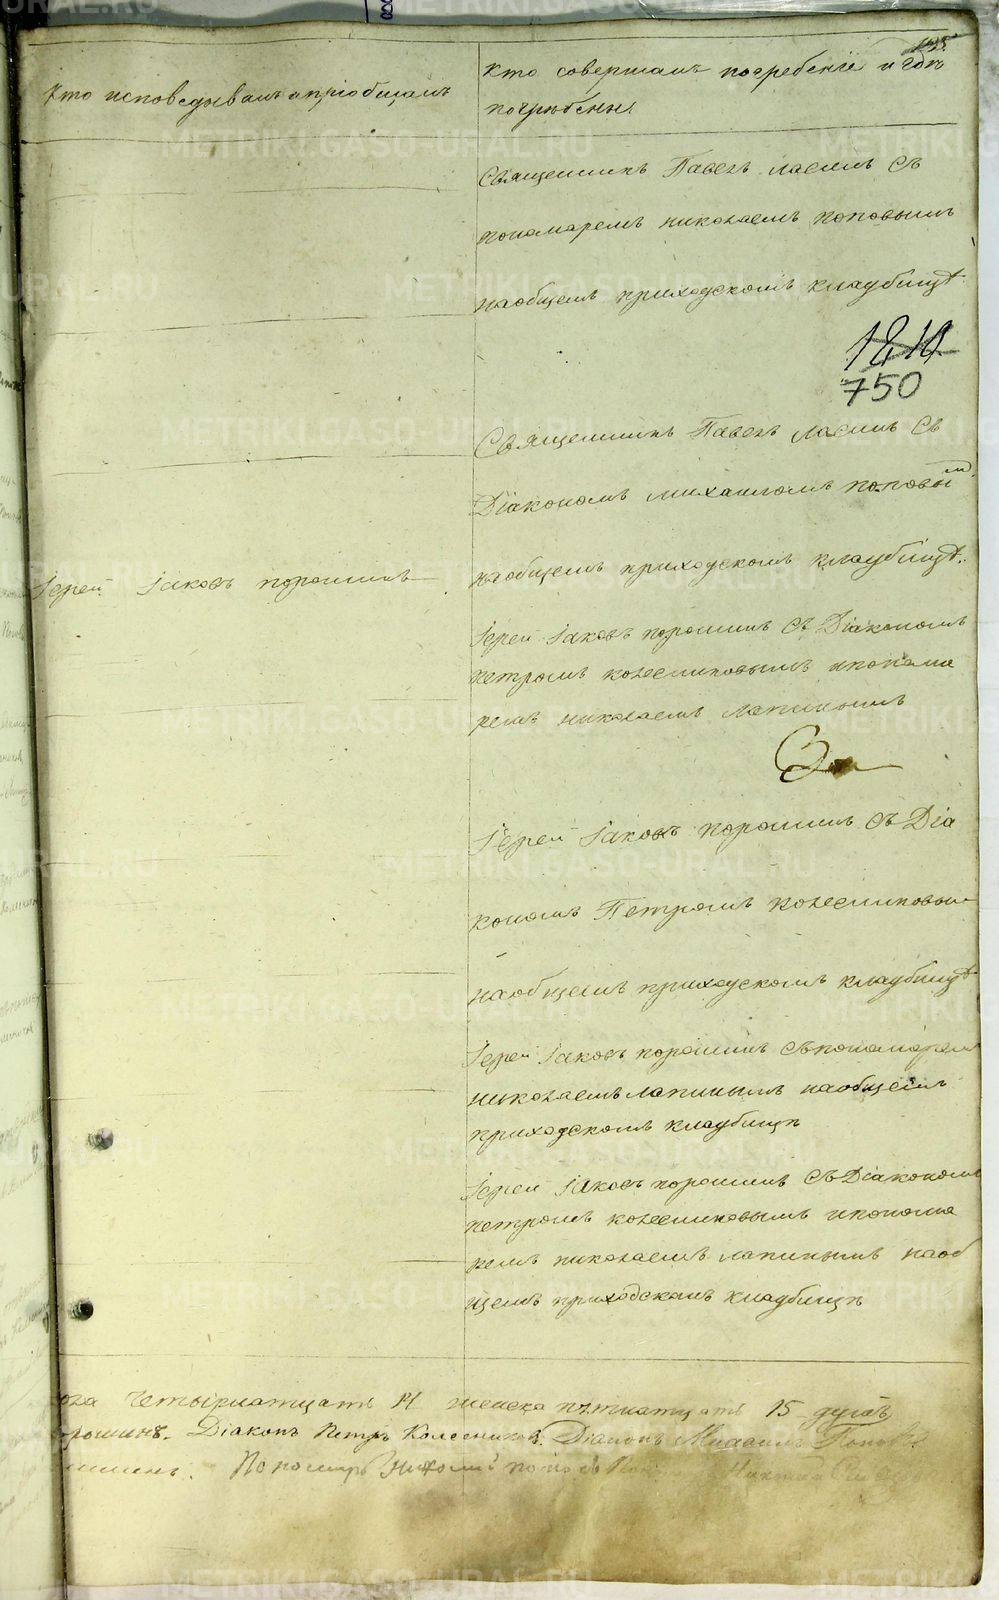 Кто исповедывалъ и пріобщалъ
Кто совершалъ погребеніе и гдѣ
погребены
Священникъ Павелъ с
пономаремъ николаемъ поповымъ
наобщемъ приходскомъ кладбищѣ
750
Священникъ Павелъ съ
Діакономъ михаиломъ поповым
наобщемъ приходскомъ кладбищѣ
Іерей Іаковъ порошинъ
Іерей Іаковъ порошинъ съ Діакономъ
петромъ колесниковымъ ипонома
ремъ николаемъ лапинымъ
Іерей Іаковъ порошинъ съ Діа
кономъ Петромъ колесниковым
наобщемъ приходскомъ кладбищѣ
Іерей Іаковъ порошинъ съпономарем
николаемъ лапинымъ наобщемъ
приходскомъ кладбищѣ
Іерей Іаковъ порошинъ съ Діакономъ
петромъ колесниковымъ ипонома
ремъ николаемъ лапинымъ наоб
щемъ приходскомъ кладбищѣ
четырнатцать 14 женска пятнатцать 15 душъ
орошинъ. Діаконъ Петръ Колесниковъ. Діаконъ Михаилъ Поповъ
Пономарь Николай поповъ
METRIKI.GASO-URAL.RU